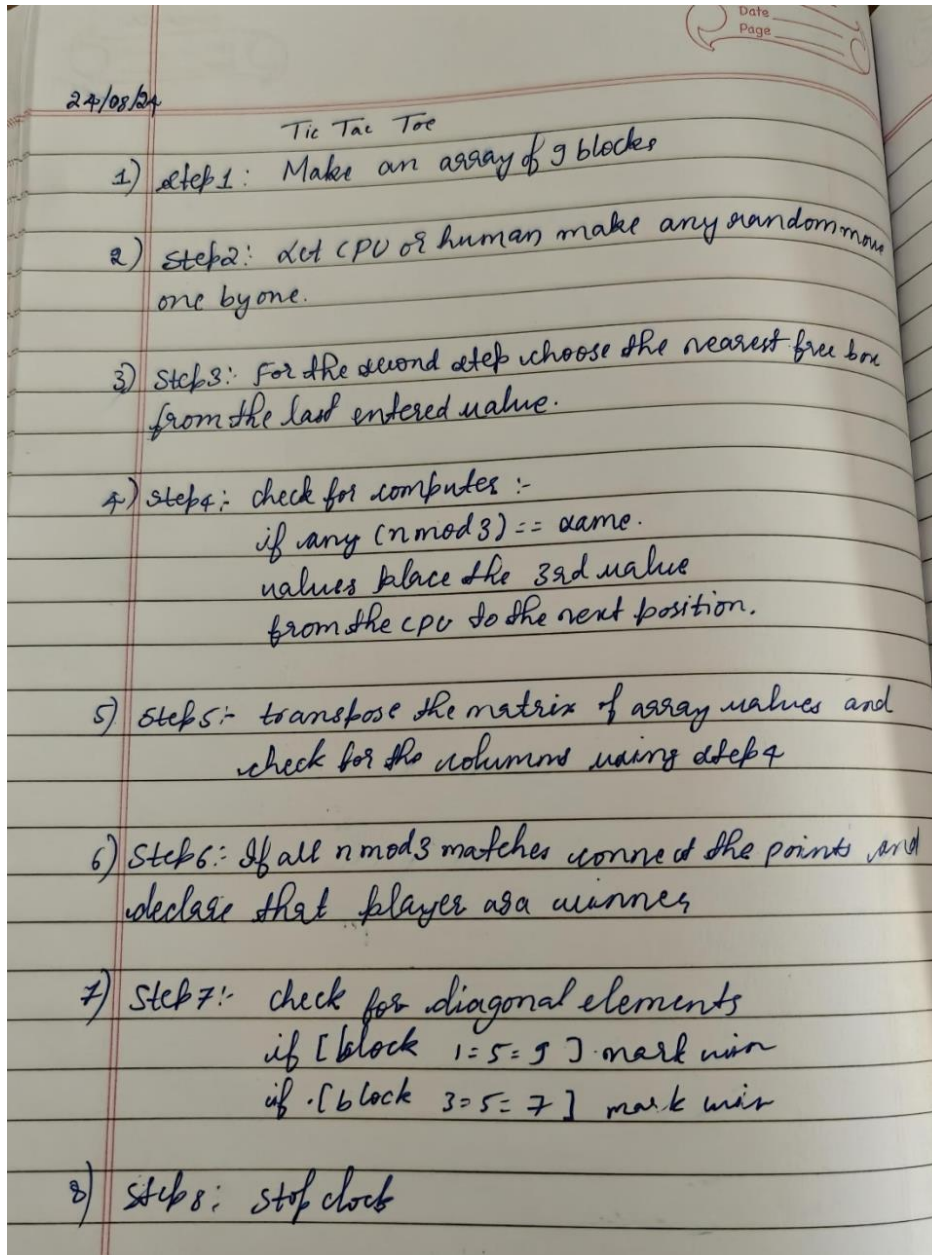 Date
Page
24/08/24
Tic Tac Toe
1) Step1: Make an array of 9 blocks
2) Step2: Let CPU or human make any random move
one by one.
3) Step3:- For the second step choose the nearest free box
from the last entered value.
4) Step4:- check for computer :-
if any (n mod 3) == same.
values place the 3rd value
from the CPU to the next position.
5) Step5:- transpose the matrix of array values and
check for the columns using step 4
6) Step6:- If all n mod 3 matches connect the points and
declare that player as a winner
7) Step7:- check for diagonal elements
if [block 1=5=9] mark win
if [block 3=5=7] mark win
8) Step8: Stop clock